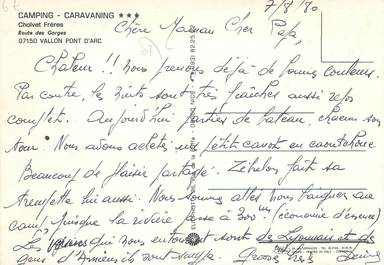 CAMPING - CARAVANING ★★★
Chalvet Frères
Route des Gorges
07150 VALLON PONT D'ARC
7/8/80
Chère Maman Cher Papa,
Chaleur !! nous prenons déjà de bonnes couleurs.
Par contre, les nuits sont très fraîches aussi repos
complet. Aujourd'hui parties de bateau, chacun son
tour. Nous avons acheté un petit canot en caoutchouc
Beaucoup de plaisir partagé. Zébulon fait sa
trempette lui aussi. Nous sommes allés nous baigner au
camp, puisque la rivière passe à 300 m (économie d'essence)
Les voisins qui nous entourent sont de Lyonnais et de
gens d'Amiens ils sont sympa. Grosses bises